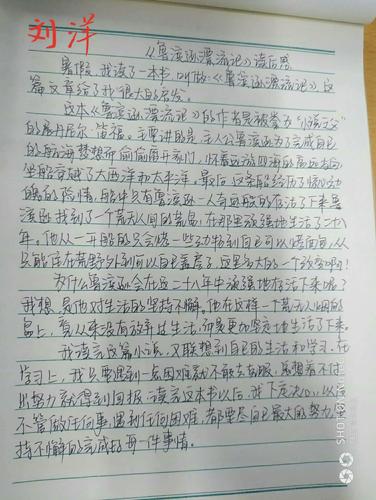 刘洋
《鲁滨逊漂流记》读后感
暑假,我读了一本书,叫做《鲁滨逊漂流记》这
篇文章给了我很大的启发。
这本《鲁滨逊漂流记》的作者是被誉为"小说之父"
的展丹尼尔·笛福。主要讲的是:主人公鲁滨逊为了完成自己
的航海梦想而偷偷离开家门,怀着远游四海的高远志向
坐船穿越了大西洋和太平洋。最后,这条船经历了惊心动
魄的险情,船中只有鲁滨逊一人奇迹般的存活了下来鲁
滨逊找到了个荒无人间的荒岛,在那里顽强地生活了二十八
年。他从一开始的只会烧一些动物到自己可以烤面包,从
只能住在荒野外到可以自己盖房子,这是多大的一个改变啊!
为什么鲁滨逊会在这二十八年中顽强地存活下来呢?
我想,是他对生活的坚持不懈。他在这样一个荒无人烟的
岛上,竟从来没有放弃过生活,而是更加坚定地生活了下来。
我读完这篇小说,又联想到自己的生活和学习。在
学习上,我只要遇到一点困难就不敢去克服,总想着不付
出努力就得到回报。读完这本书以后,我下定决心,以后
不管做任何事,遇到任何困难,都要尽自己最大的努力,坚
持不懈的完成好每一件事情。